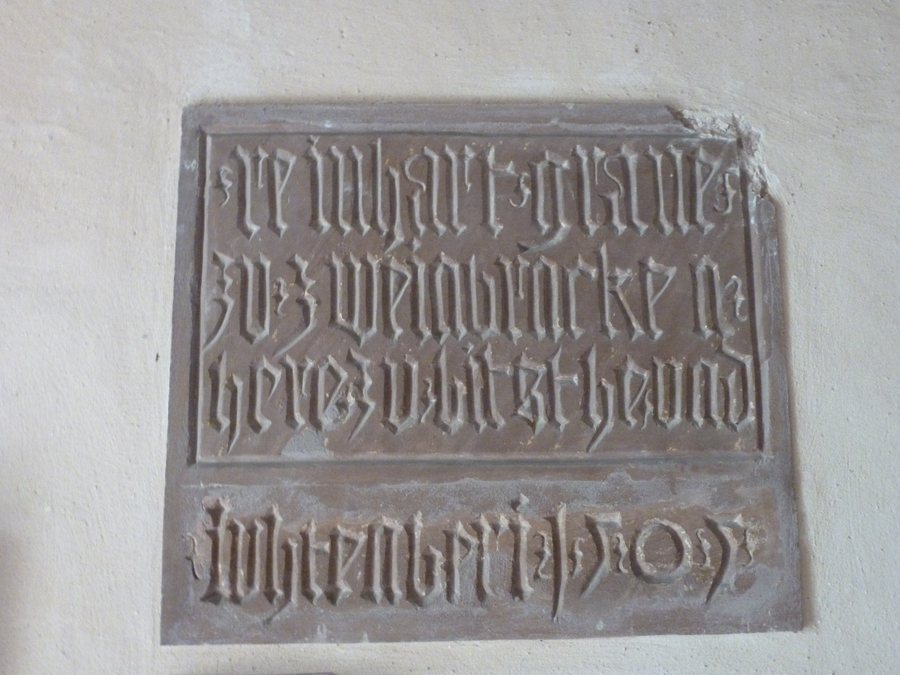 · reinhart · graue ·
zv · zweinbrucke n ·
here · zv · bitsthe · vnd
· liihtenberi · 1 · 5 · 0 · 5 ·